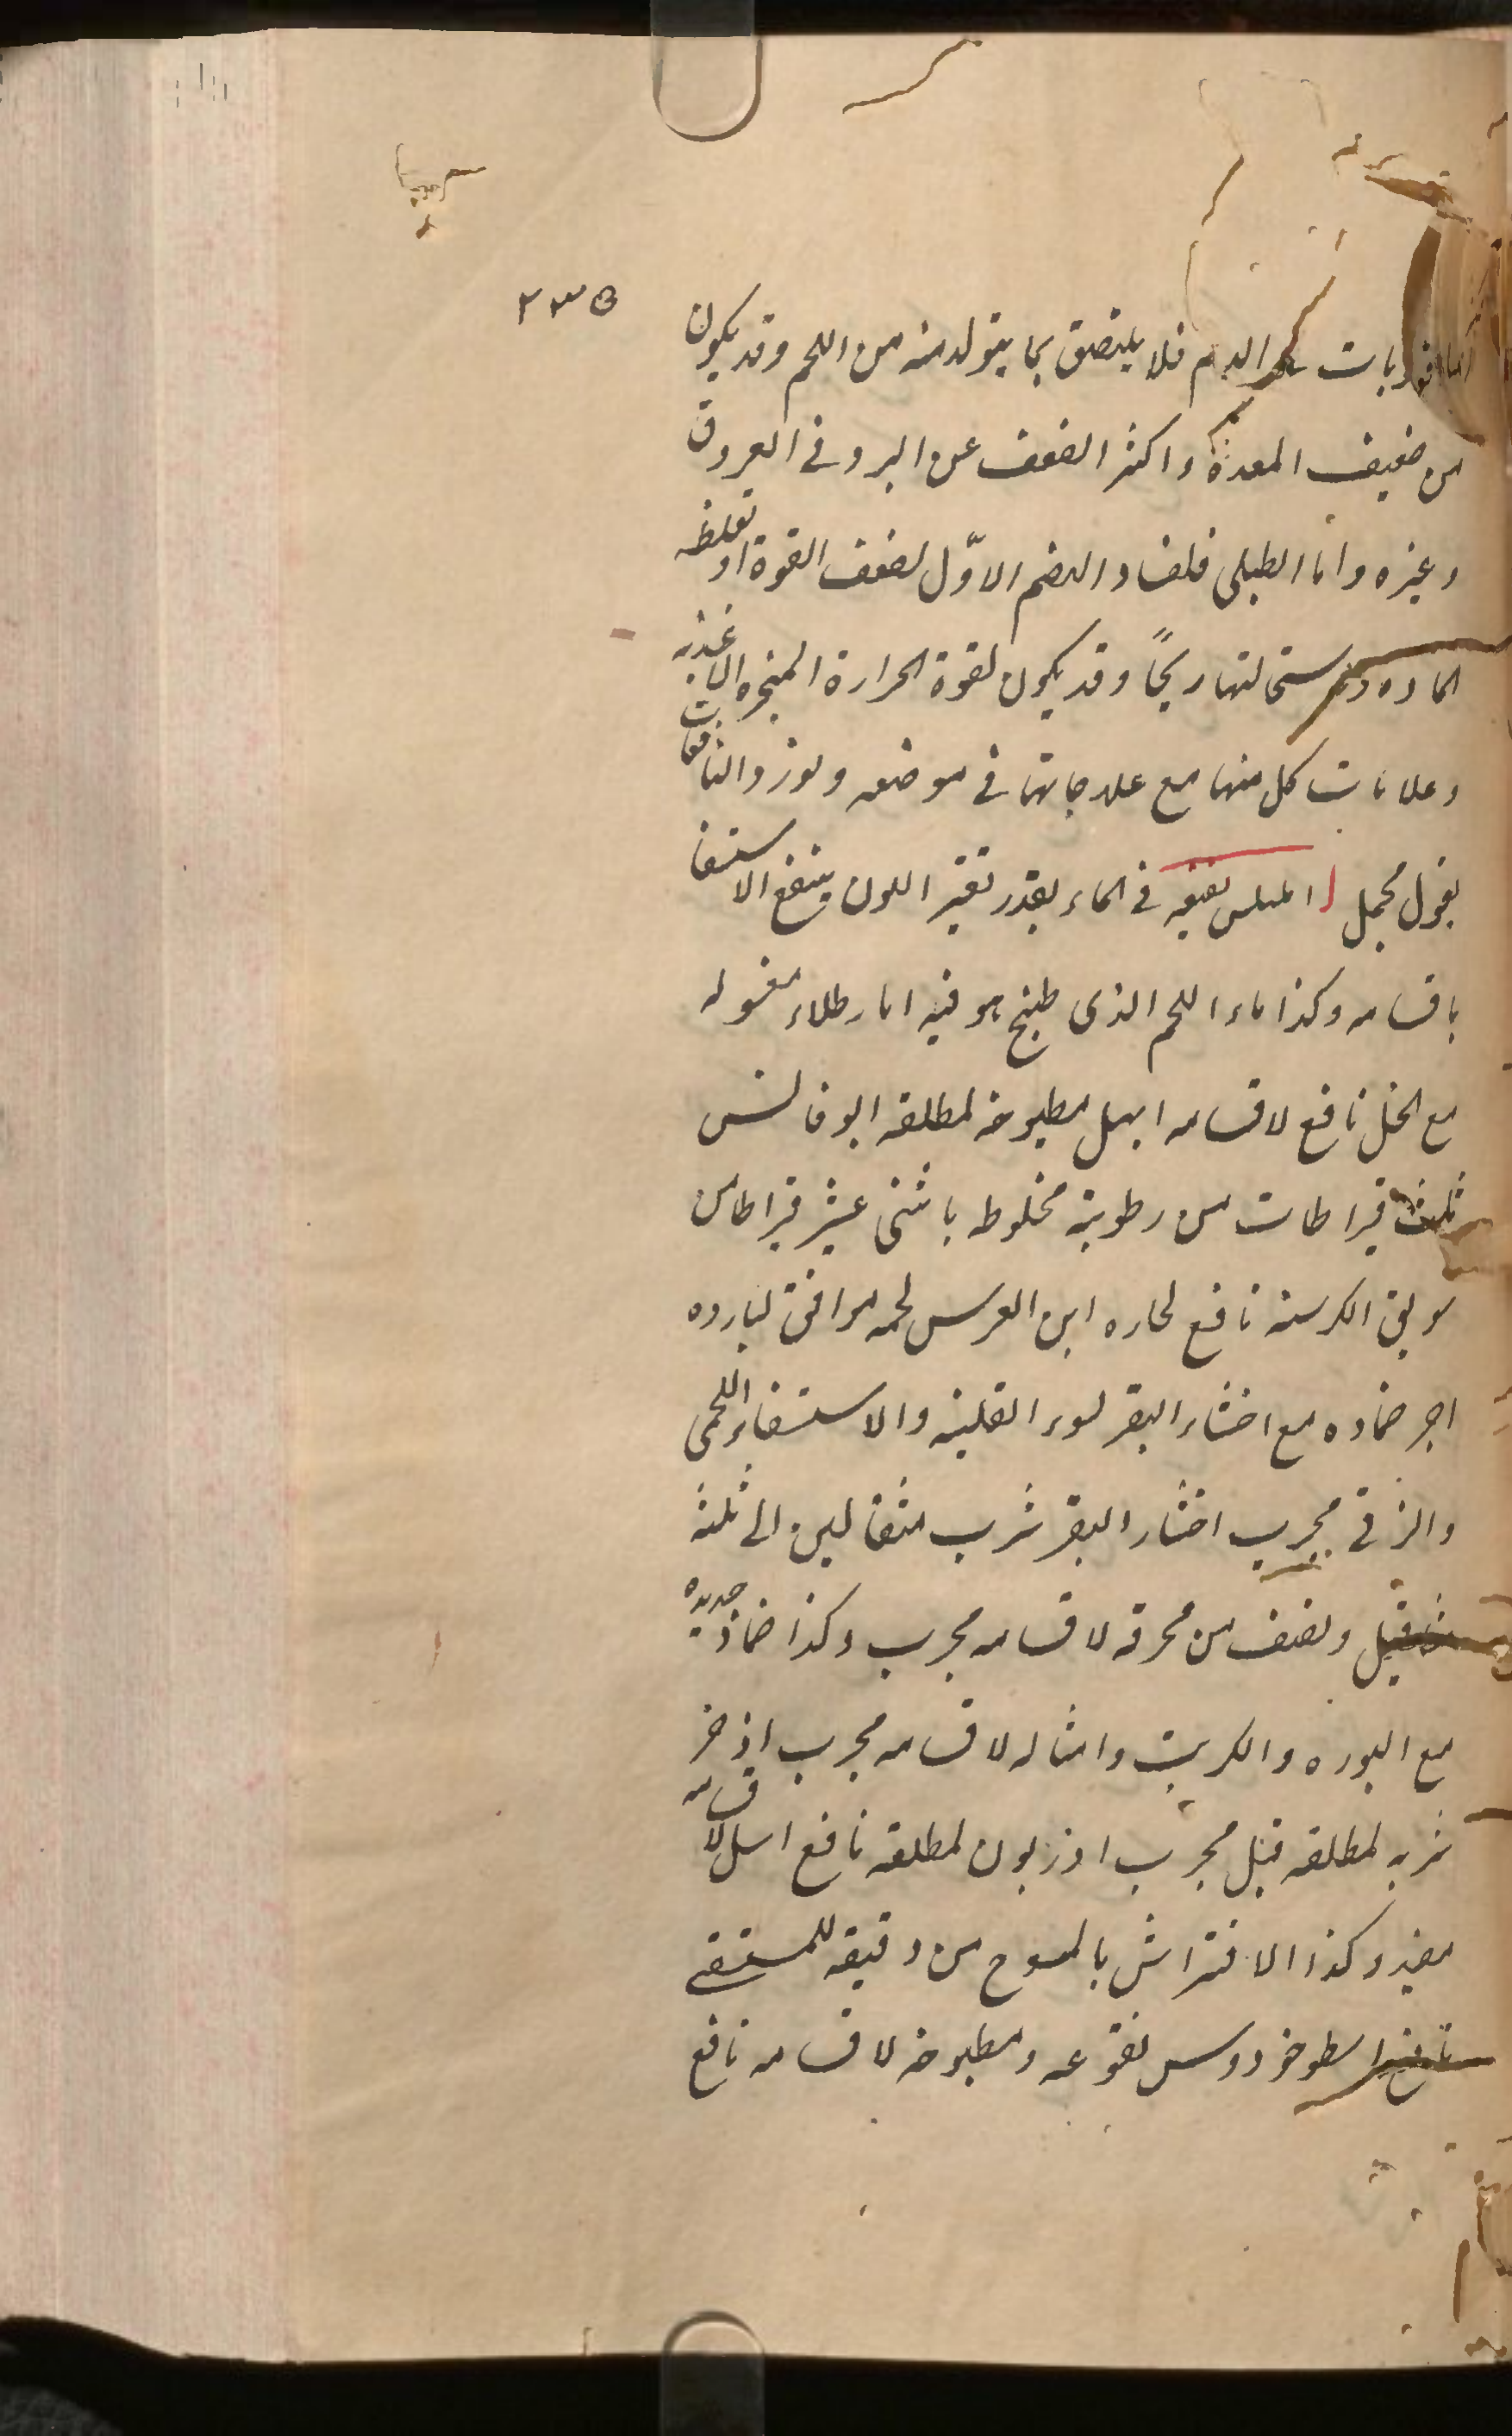 ٢٣٥
الدم فلا يلتصق بما يتولد منه من اللحم وقد يكون
من ضعيف المعدة واكثر الضعف عن البرد في العروق
وغيره واما الطبلى فلفساد الهضم الاوّل لضعف القوة او لغلظ
المادة سحالتها ريحًا وقد يكون لقوة الحرارة المبخرة الاغذيه
وعلامات كل منها مع علاجاتها في موضعه ونورد النافعات
بقول مجمل نقيعه في الماء بقدر تغير اللون ينفع الاستسقا
باقسامه وكذا ماء اللحم الذى طبخ هو فيه اما رطلاء مغسوله
مع الخل نافع لاقسامه ابهل مطبوخه لمطلقه ابوفالس
ثلث قيراطات من رطوبته مخلوطه باثنى عشر قيراطا من
سويق الكرسنه نافع لحاره ابن العرس لحمه موافق لبارده
اجر ضماده مع اخثاء البقر لسوء القنيه والاستسقاء اللحمى
والزقى مجرب اخثاء البقر شرب مثقالين الى ثلثه
مثاقيل ونصف من محرقه لاقسامه مجرب وكذا ضماد جديده
مع البوره والكبريت وامثاله لاقسامه مجرب اذخر
شربه لمطلقه قيل مجرب اذريون لمطلقه نافع اسل لاقسامه
مفيد وكذا الافتراش بالمسوح من دقيقه للمستسقى
نافع اسطوخودوس نقوعه ومطبوخه لاقسامه نافع